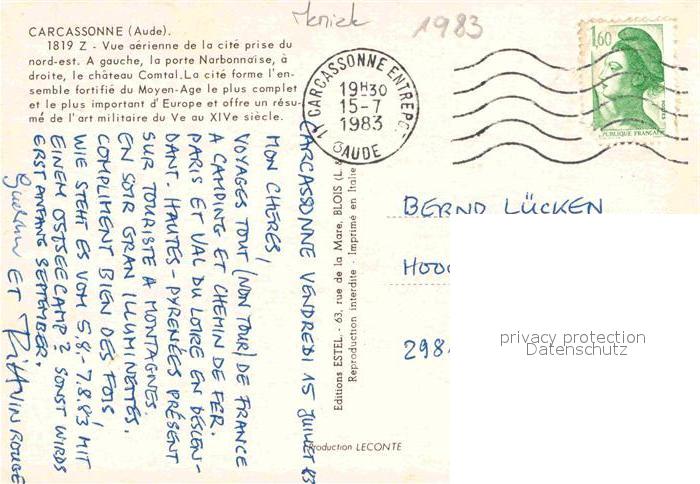 Meniek
1983
CARCASSONNE (Aude).
1819 Z - Vue aérienne de la cité prise du
nord-est. A gauche, la porte Narbonnaise, à
droite, le château Comtal. La cité forme l'en-
semble fortifié du Moyen-Age le plus complet
et le plus important d'Europe et offre un résu-
mé de l'art militaire du Ve au XIVe siècle.
11 CARCASSONNE ENTREP
19H30
15-7
1983
AUDE
1,60
POSTES
RÉPUBLIQUE FRANÇAISE
CARCASSONNE VENDREDI 15 JUILLET 83
MON CHERES,
VOYAGES TOUT (NON TOUR) DE FRANCE
A CAMPING ET CHEMIN DE FER.
PARIS ET VAL DU LOIRE EN DESCEN-
DANT. HAUTES-PYRENÉES PRÉSENT
SUR TOURISTE A MONTAGNES.
EN SOIR GRAN ILLUMINETTES.
COMPLIMENT BIEN DES FOIS,
WIE STEHT ES VOM 5.8.-7.8.83 MIT
EINEM OSTSEECAMP? SONST WIRDS
ERST ANFANG SEPTEMBER.
ET VIN ROUGE
Editions ESTEL. - 63, rue de la Mare, BLOIS (L.
Reproduction interdite - Imprimé en Italie
Production LECONTE
BERND LÜCKEN
HOO
298
privacy protection
Datenschutz